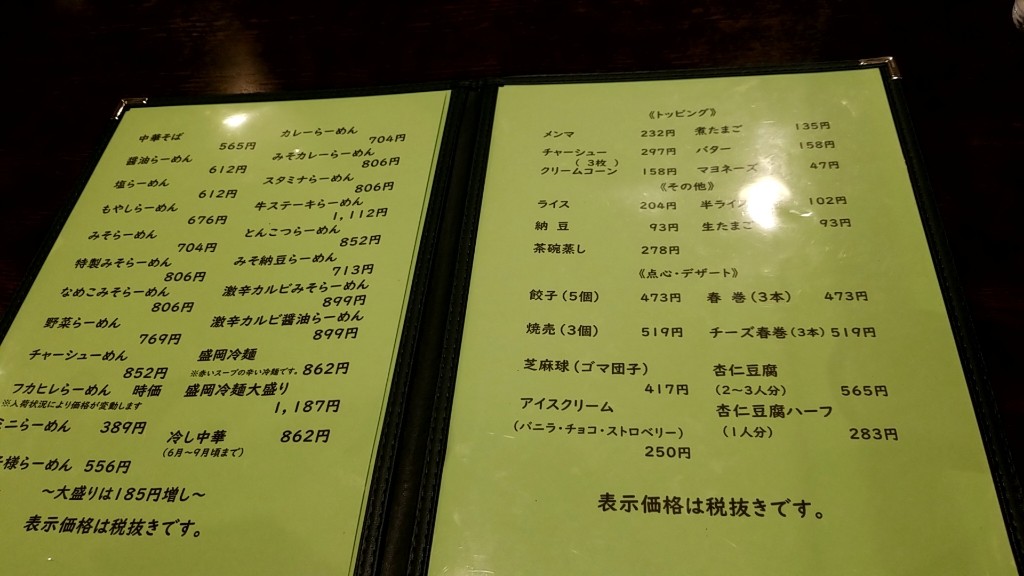 中華そば 565円
醤油らーめん 612円
塩らーめん 612円
もやしらーめん 676円
みそらーめん 704円
特製みそらーめん 806円
なめこみそらーめん 806円
野菜らーめん 769円
チャーシューめん 852円
フカヒレらーめん 時価
※入荷状況により価格が変動します
ミニらーめん 389円
様らーめん 556円
カレーらーめん 704円
みそカレーらーめん 806円
スタミナらーめん 806円
牛ステーキらーめん 1,112円
とんこつらーめん 852円
みそ納豆らーめん 713円
激辛カルビみそらーめん 899円
激辛カルビ醤油らーめん 899円
盛岡冷麺
※赤いスープの辛い冷麺です。 862円
盛岡冷麺大盛り 1,187円
冷し中華 862円
(6月〜9月頃まで)
〜大盛りは185円増し〜
表示価格は税抜きです。
《トッピング》
メンマ 232円 煮たまご 135円
チャーシュー 297円 バター 158円
(3枚)
クリームコーン 158円 マヨネーズ 47円
《その他》
ライス 204円 半ライス 102円
納豆 93円 生たまご 93円
茶碗蒸し 278円
《点心・デザート》
餃子(5個) 473円 春巻(3本) 473円
焼売(3個) 519円 チーズ春巻(3本) 519円
芝麻球(ゴマ団子) 杏仁豆腐
417円 (2〜3人分) 565円
アイスクリーム 杏仁豆腐ハーフ
(バニラ・チョコ・ストロベリー) (1人分) 283円
250円
表示価格は税抜きです。